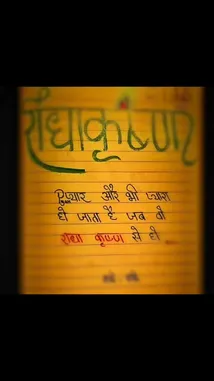 राधाकृष्ण
प्यार और भी प्यारा
हो जाता है जब वो
राधा कृष्ण से हो